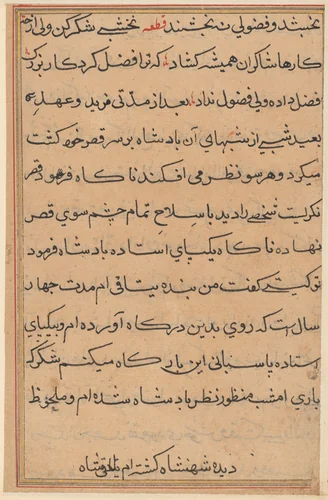 نخبشد و فضولي نه بخشند قطعه نخشبي شكر كن ولي از همه
كارها شاكران هميشه كشاد كر ترا فضل كرد كار بزرك
فضل داده ولي فضول نداد بعد از مدّتي مريد و عهدي
بعيد شبي از شبهاي آن بادشاه بر سر قصر خود كشت
ميكرد و هر سو نظر مي افكند ناكاه فرود قصر
نكريست شخصي را ديد با سلاح تمام چشم سوي قصر
نهاده ناكاه بيكپاي استاده بادشاه فرمود
تو كيستي كفت من بنده يتاقي ام مدت چهار
سال است كه روي بدين دركاه آورده ام و بيكپاي
استاده پاسباني اين باركاه ميكنم شكر كه
باري امشب منظور نظر بادشاه شده ام و ملحوظ
ديده شهنشاه كشته ام بادشاه